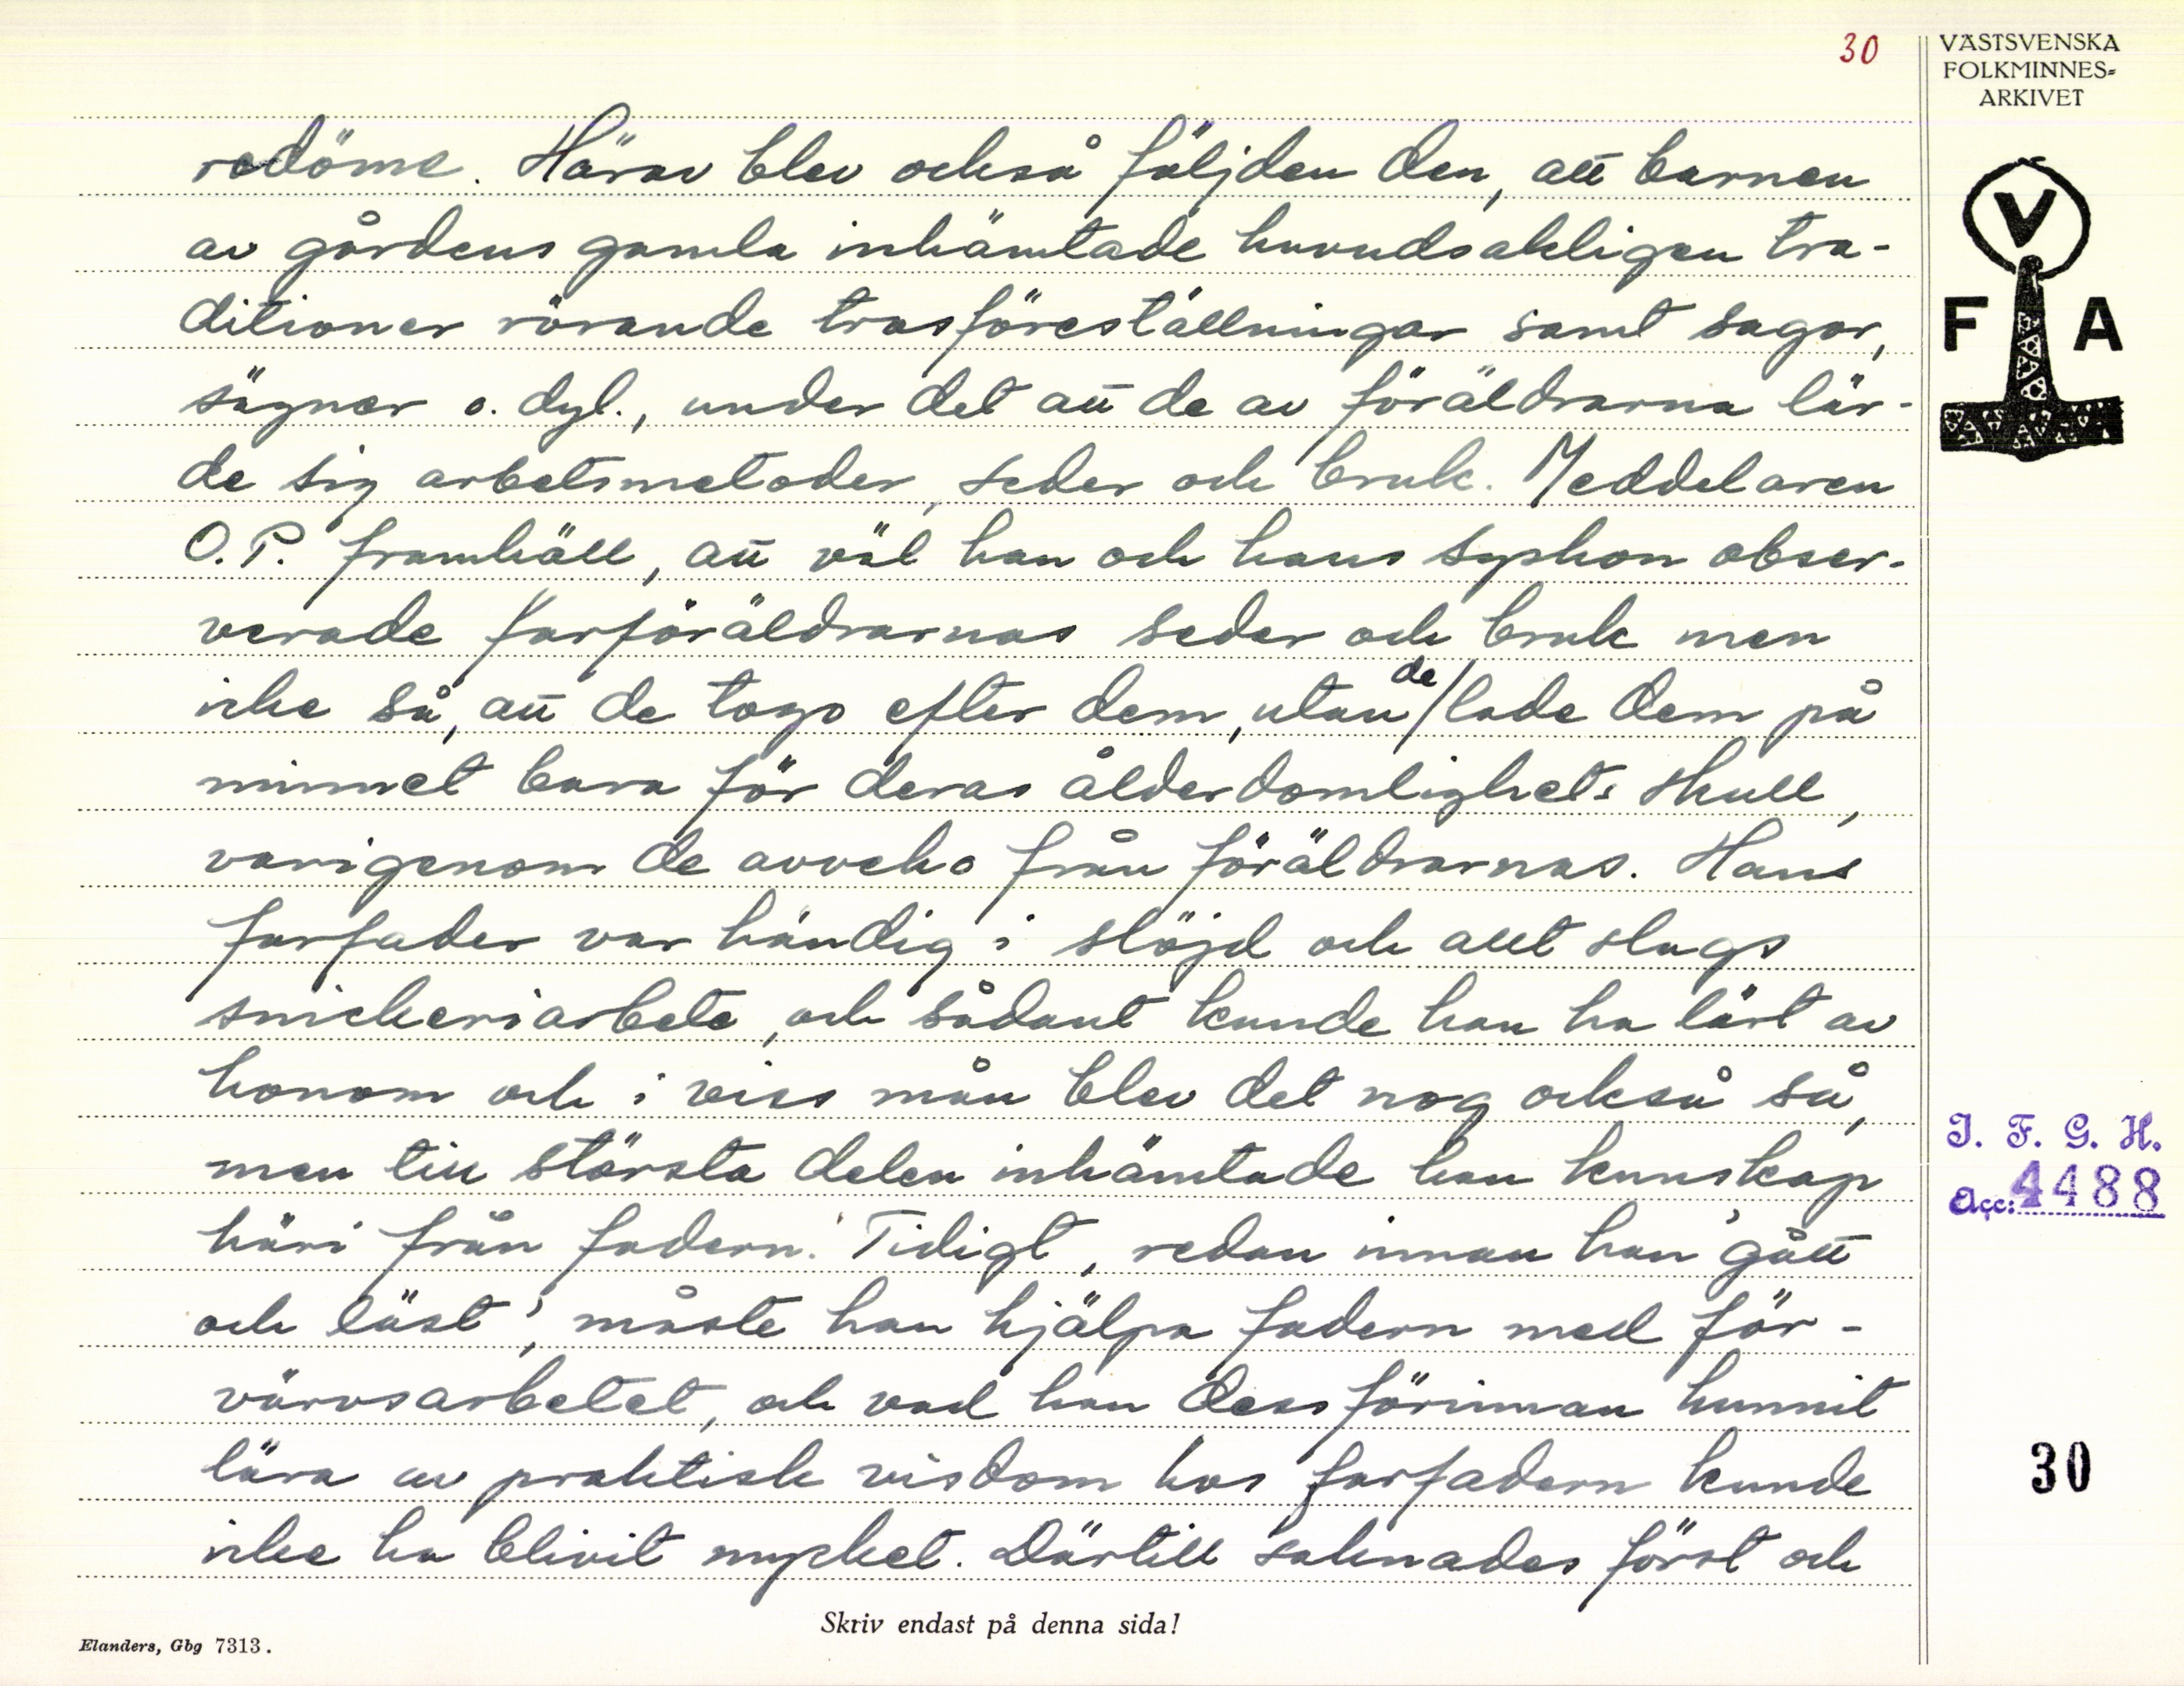 30
VÄSTSVENSKA
FOLKMINNES-
ARKIVET
V
F A
redöme. Härav blev också följden den, att barnen
av gårdens gamla inhämtade huvudsakligen tra-
ditioner rörande trosföreställningar samt sagor,
sägner o. dyl., under det att de av föräldrarna lär-
de sig arbetsmetoder, seder och bruk. Meddelaren
O.P. framhöll, att väl han och hans syskon obser-
verade farföräldrarnas seder och bruk men
icke så, att de togo efter dem, utan de lade dem på
minnet bara för deras ålderdomlighets skull,
varigenom de avveko från föräldrarnas. Hans
farfader var händig i slöjd och allt slags
snickeriarbete, och sådant kunde han ha lärt av
honom och i viss mån blev det nog också så,
men till största delen inhämtade han kunskap
häri från fadern. Tidigt, redan innan han 'gått
och läst', måste han hjälpa fadern med för-
värvsarbetet, och vad han dessförinnan hunnit
lära av praktisk visdom hos farfadern kunde
icke ha blivit mycket. Därtill saknades först och
I. F. G. H.
Acc: 4488
30
Skriv endast på denna sida!
Elanders, Gbg 7313.